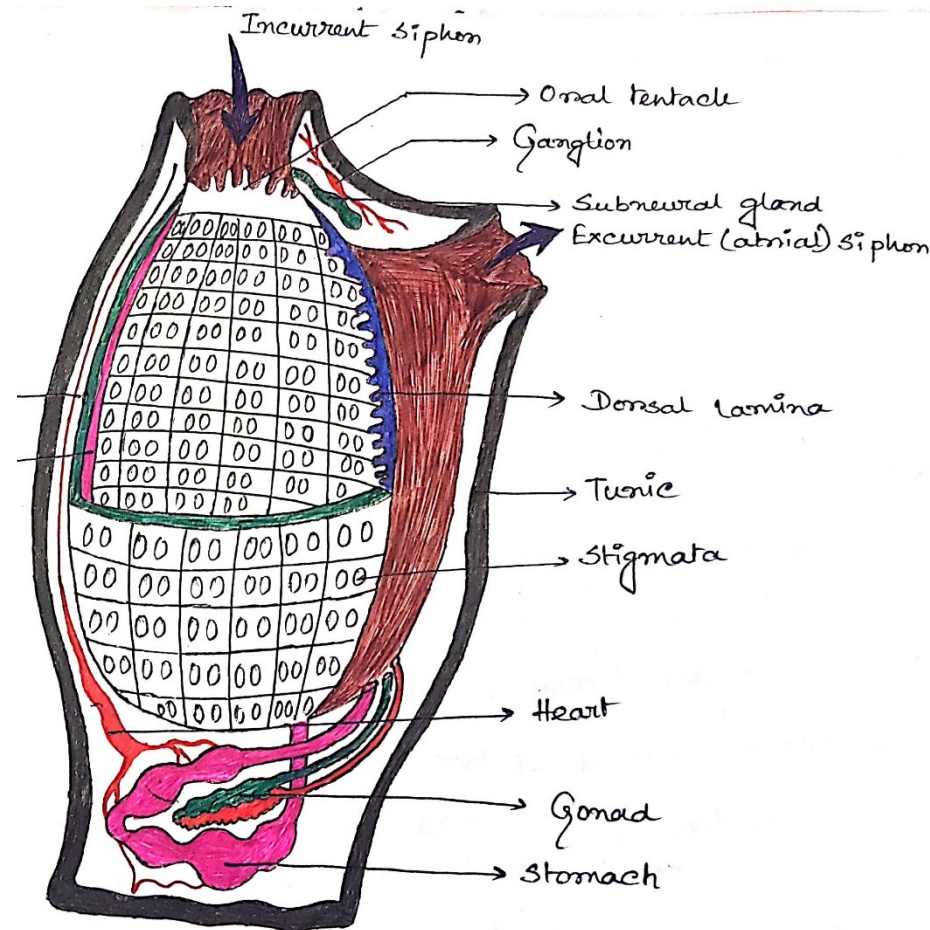 Incurrent siphon
Oral tentacle
Ganglion
Subneural gland
Excurrent (atrial) siphon
Dorsal lamina
Tunic
Stigmata
Heart
Gonad
Stomach